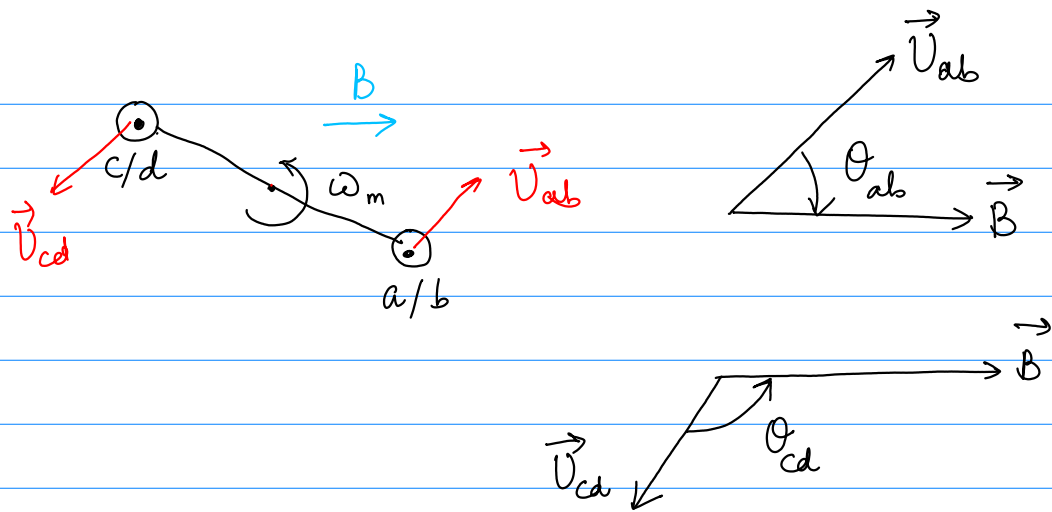 B⃗
c/d
ω_m
v⃗_ab
v⃗_cd
a/b
v⃗_ab
θ_ab
B⃗
B⃗
θ_cd
v⃗_cd